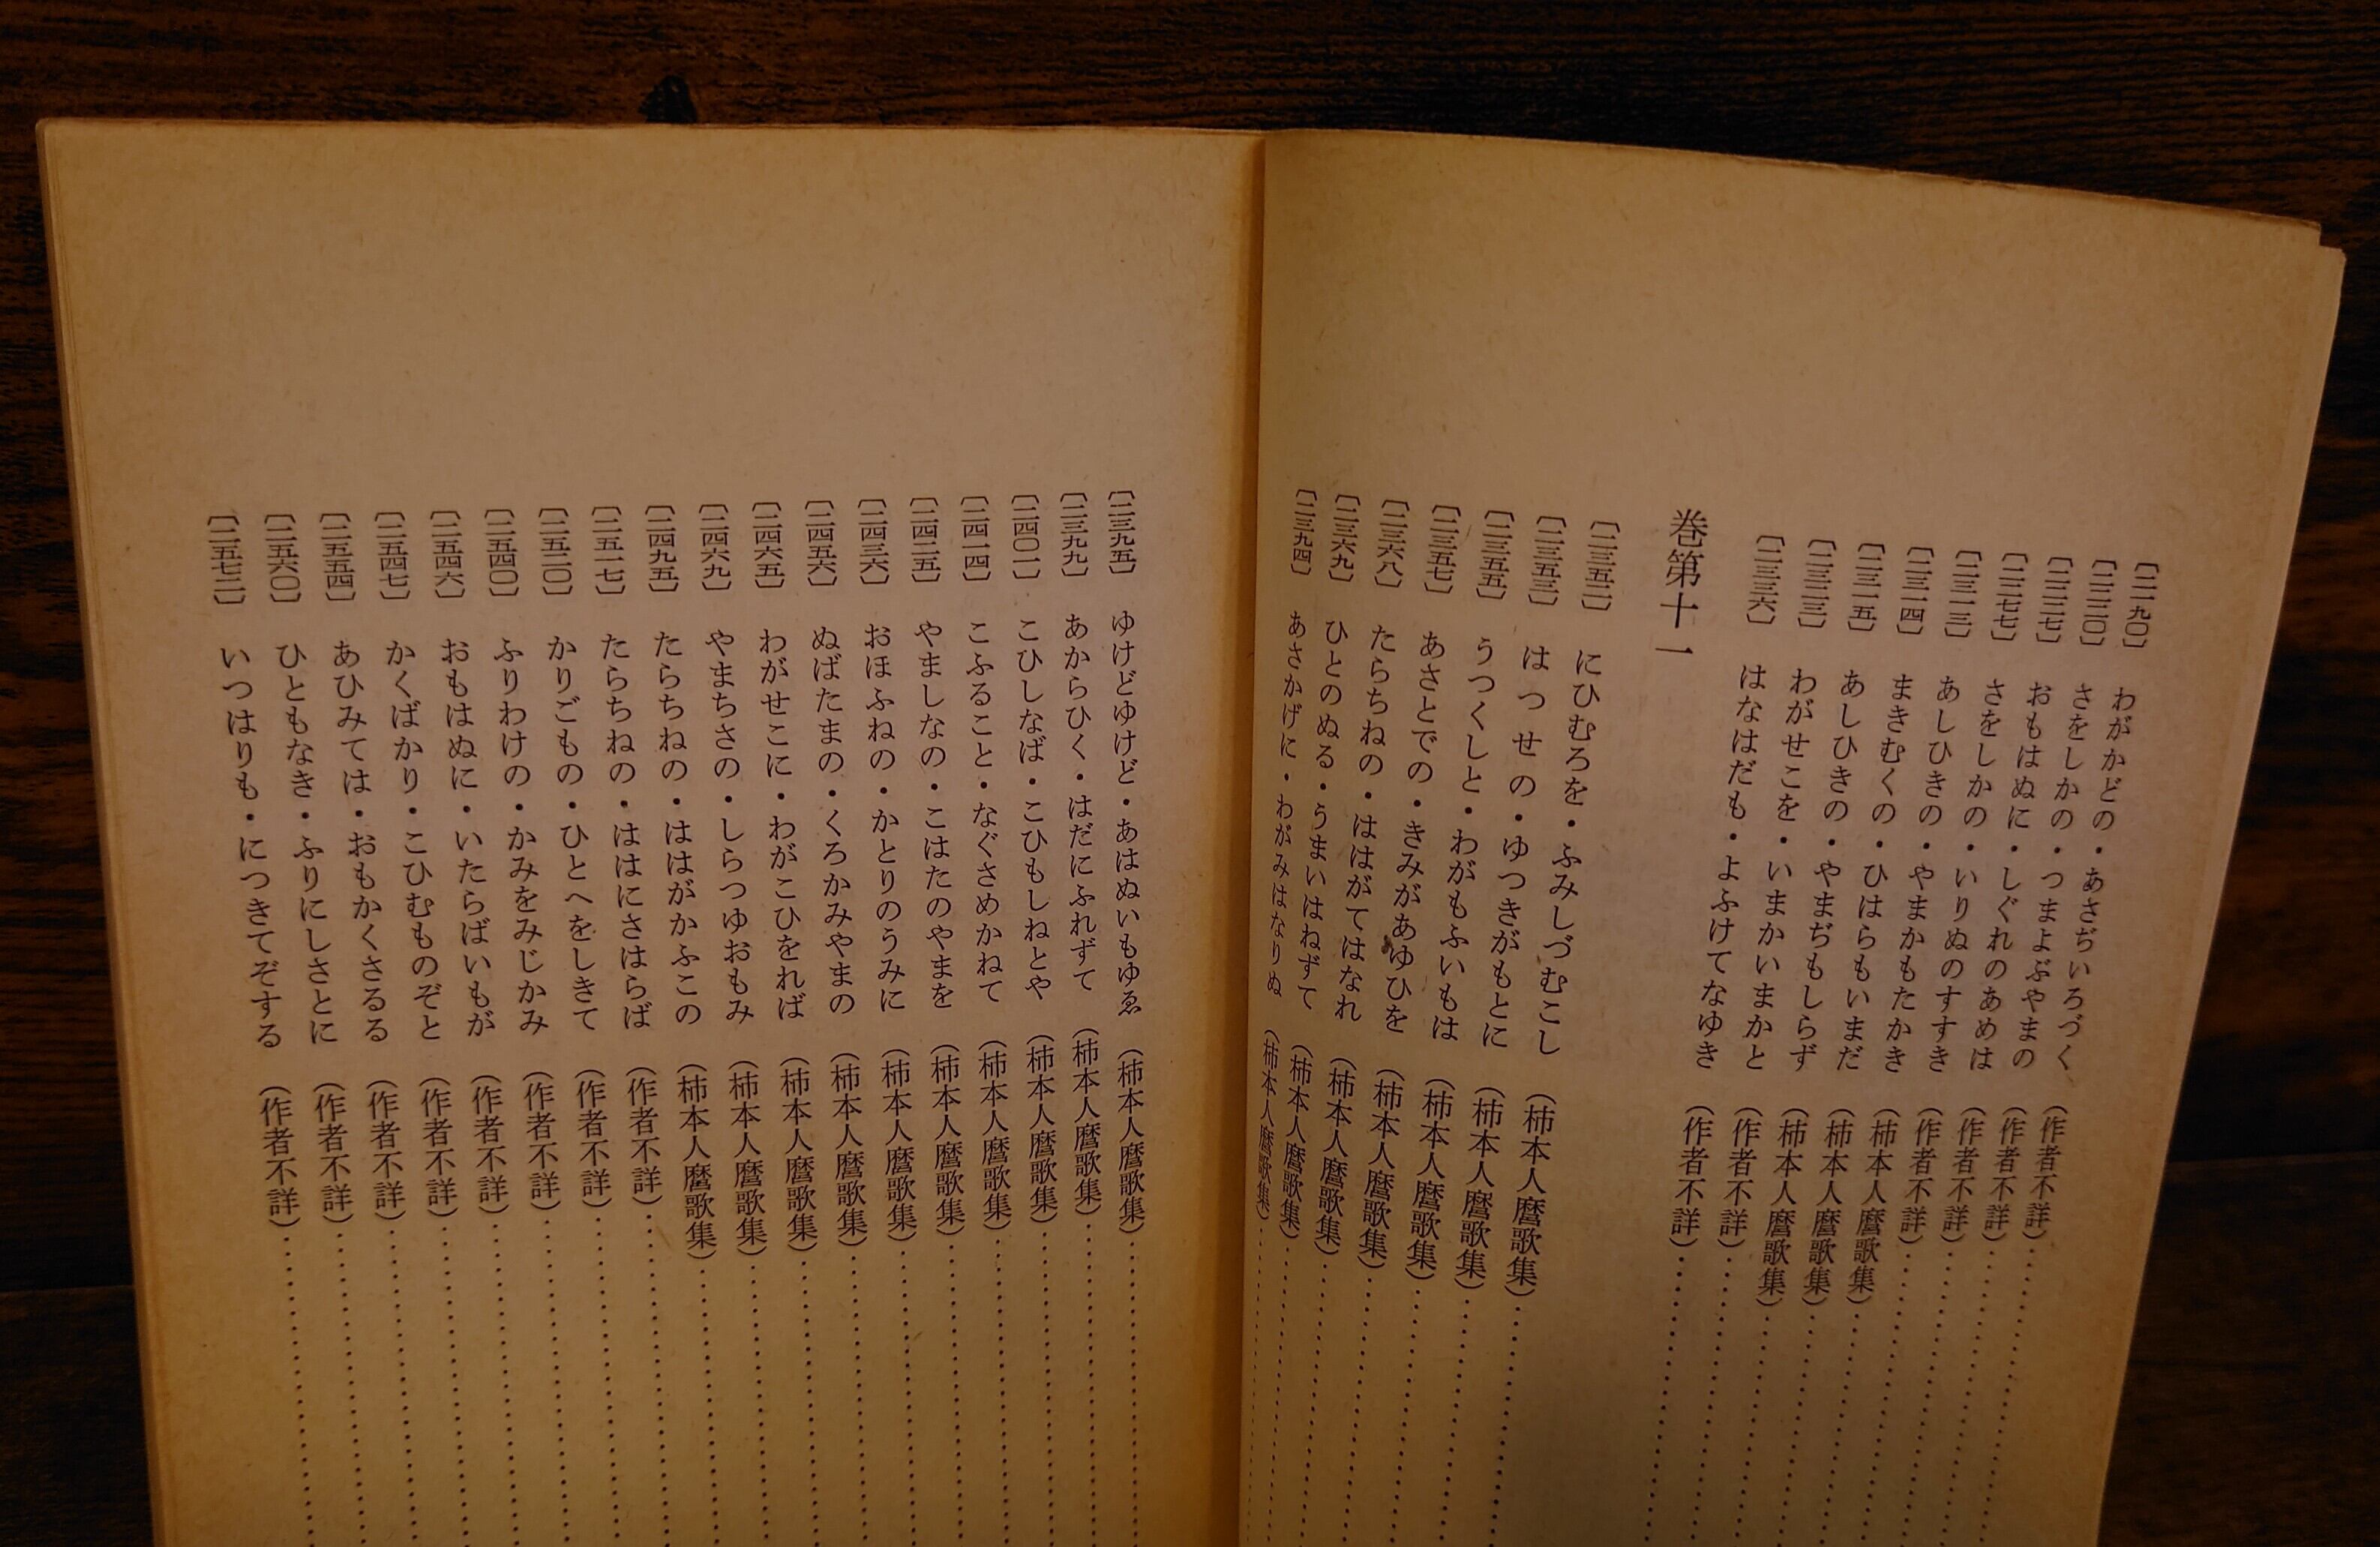 〔二一九〇〕 わがかどの・あさぢいろづく (作者不詳)……
〔二二二〇〕 さをしかの・つまよぶやまの (作者不詳)……
〔二二二七〕 おもはぬに・しぐれのあめは (作者不詳)……
〔二二七七〕 さをしかの・いりぬのすすき (作者不詳)……
〔二三一三〕 あしひきの・やまかもたかき (柿本人麿歌集)……
〔二三一四〕 まきむくの・ひはらもいまだ (柿本人麿歌集)……
〔二三一五〕 あしひきの・やまぢもしらず (柿本人麿歌集)……
〔二三二三〕 わがせこを・いまかいまかと (作者不詳)……
〔二三三六〕 はなはだも・よふけてなゆき (作者不詳)……
巻第十一
〔二三五二〕 にひむろを・ふみしづむこし (柿本人麿歌集)……
〔二三五三〕 はつせの・ゆつきがもとに (柿本人麿歌集)……
〔二三五五〕 うつくしと・わがもふいもは (柿本人麿歌集)……
〔二三五七〕 あさとでの・きみがあゆひを (柿本人麿歌集)……
〔二三六八〕 たらちねの・ははがてはなれ (柿本人麿歌集)……
〔二三六九〕 ひとのぬる・うまいはねずて (柿本人麿歌集)……
〔二三九四〕 あさかげに・わがみはなりぬ (柿本人麿歌集)……
〔二三九五〕 ゆけどゆけど・あはぬいもゆゑ (柿本人麿歌集)……
〔二三九九〕 あからひく・はだにふれずて (柿本人麿歌集)……
〔二四〇一〕 こひしなば・こひもしねとや (柿本人麿歌集)……
〔二四一四〕 こふること・なぐさめかねて (柿本人麿歌集)……
〔二四二五〕 やましなの・こはたのやまを (柿本人麿歌集)……
〔二四三六〕 おほふねの・かとりのうみに (柿本人麿歌集)……
〔二四五六〕 ぬばたまの・くろかみやまの (柿本人麿歌集)……
〔二四六五〕 わがせこに・わがこひをれば (柿本人麿歌集)……
〔二四六九〕 やまちさの・しらつゆおもみ (柿本人麿歌集)……
〔二四九五〕 たらちねの・ははがかふこの (柿本人麿歌集)……
〔二五一七〕 たらちねの・ははにさはらば (作者不詳)……
〔二五二〇〕 かりごもの・ひとへをしきて (作者不詳)……
〔二五四〇〕 ふりわけの・かみをみじかみ (作者不詳)……
〔二五四六〕 おもはぬに・いたらばいもが (作者不詳)……
〔二五四七〕 かくばかり・こひむものぞと (作者不詳)……
〔二五五四〕 あひみては・おもかくさるる (作者不詳)……
〔二五六〇〕 ひともなき・ふりにしさとに (作者不詳)……
〔二五七二〕 いつはりも・につきてぞする (作者不詳)……